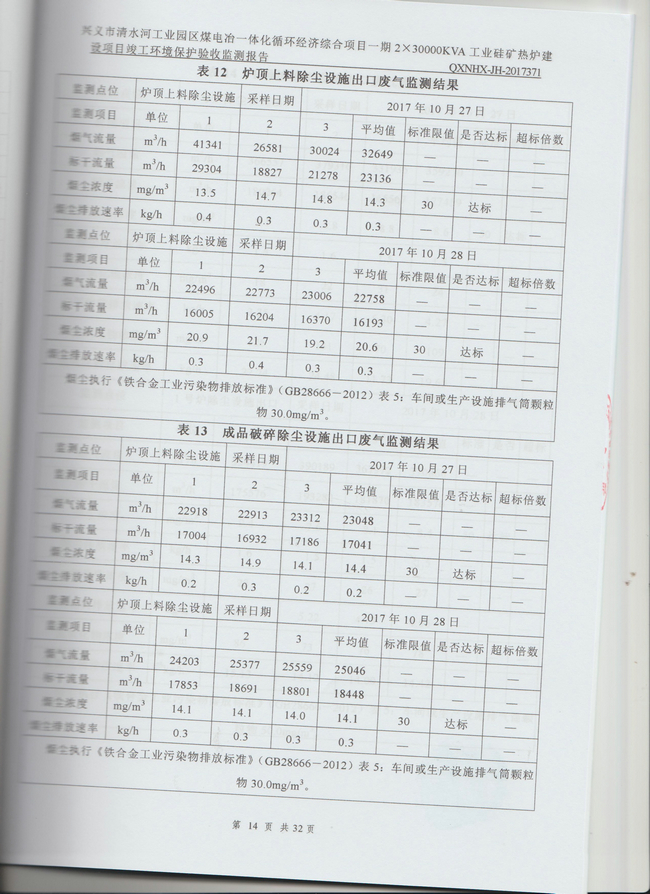 兴义市清水河工业园区煤电冶一体化循环经济综合项目一期 2×30000KVA 工业硅矿热炉建
设项目竣工环境保护验收监测报告 QXNHX-JH-2017371
表 12 炉顶上料除尘设施出口废气监测结果
监测点位 炉顶上料除尘设施 采样日期 2017 年 10 月 27 日
监测项目 单位 1 2 3 平均值 标准限值 是否达标 超标倍数
烟气流量 m³/h 41341 26581 30024 32649 — — —
标干流量 m³/h 29304 18827 21278 23136 — — —
烟尘浓度 mg/m³ 13.5 14.7 14.8 14.3 30 达标 —
烟尘排放速率 kg/h 0.4 0.3 0.3 0.3 — — —
监测点位 炉顶上料除尘设施 采样日期 2017 年 10 月 28 日
监测项目 单位 1 2 3 平均值 标准限值 是否达标 超标倍数
烟气流量 m³/h 22496 22773 23006 22758 — — —
标干流量 m³/h 16005 16204 16370 16193 — — —
烟尘浓度 mg/m³ 20.9 21.7 19.2 20.6 30 达标 —
烟尘排放速率 kg/h 0.3 0.4 0.3 0.3 — — —
烟尘执行《铁合金工业污染物排放标准》（GB28666－2012）表 5：车间或生产设施排气筒颗粒
物 30.0mg/m³。
表 13 成品破碎除尘设施出口废气监测结果
监测点位 炉顶上料除尘设施 采样日期 2017 年 10 月 27 日
监测项目 单位 1 2 3 平均值 标准限值 是否达标 超标倍数
烟气流量 m³/h 22918 22913 23312 23048 — — —
标干流量 m³/h 17004 16932 17186 17041 — — —
烟尘浓度 mg/m³ 14.3 14.9 14.1 14.4 30 达标 —
烟尘排放速率 kg/h 0.2 0.3 0.2 0.2 — — —
监测点位 炉顶上料除尘设施 采样日期 2017 年 10 月 28 日
监测项目 单位 1 2 3 平均值 标准限值 是否达标 超标倍数
烟气流量 m³/h 24203 25377 25559 25046 — — —
标干流量 m³/h 17853 18691 18801 18448 — — —
烟尘浓度 mg/m³ 14.1 14.1 14.0 14.1 30 达标 —
烟尘排放速率 kg/h 0.3 0.3 0.3 0.3 — — —
烟尘执行《铁合金工业污染物排放标准》（GB28666－2012）表 5：车间或生产设施排气筒颗粒
物 30.0mg/m³。
第 14 页 共 32 页